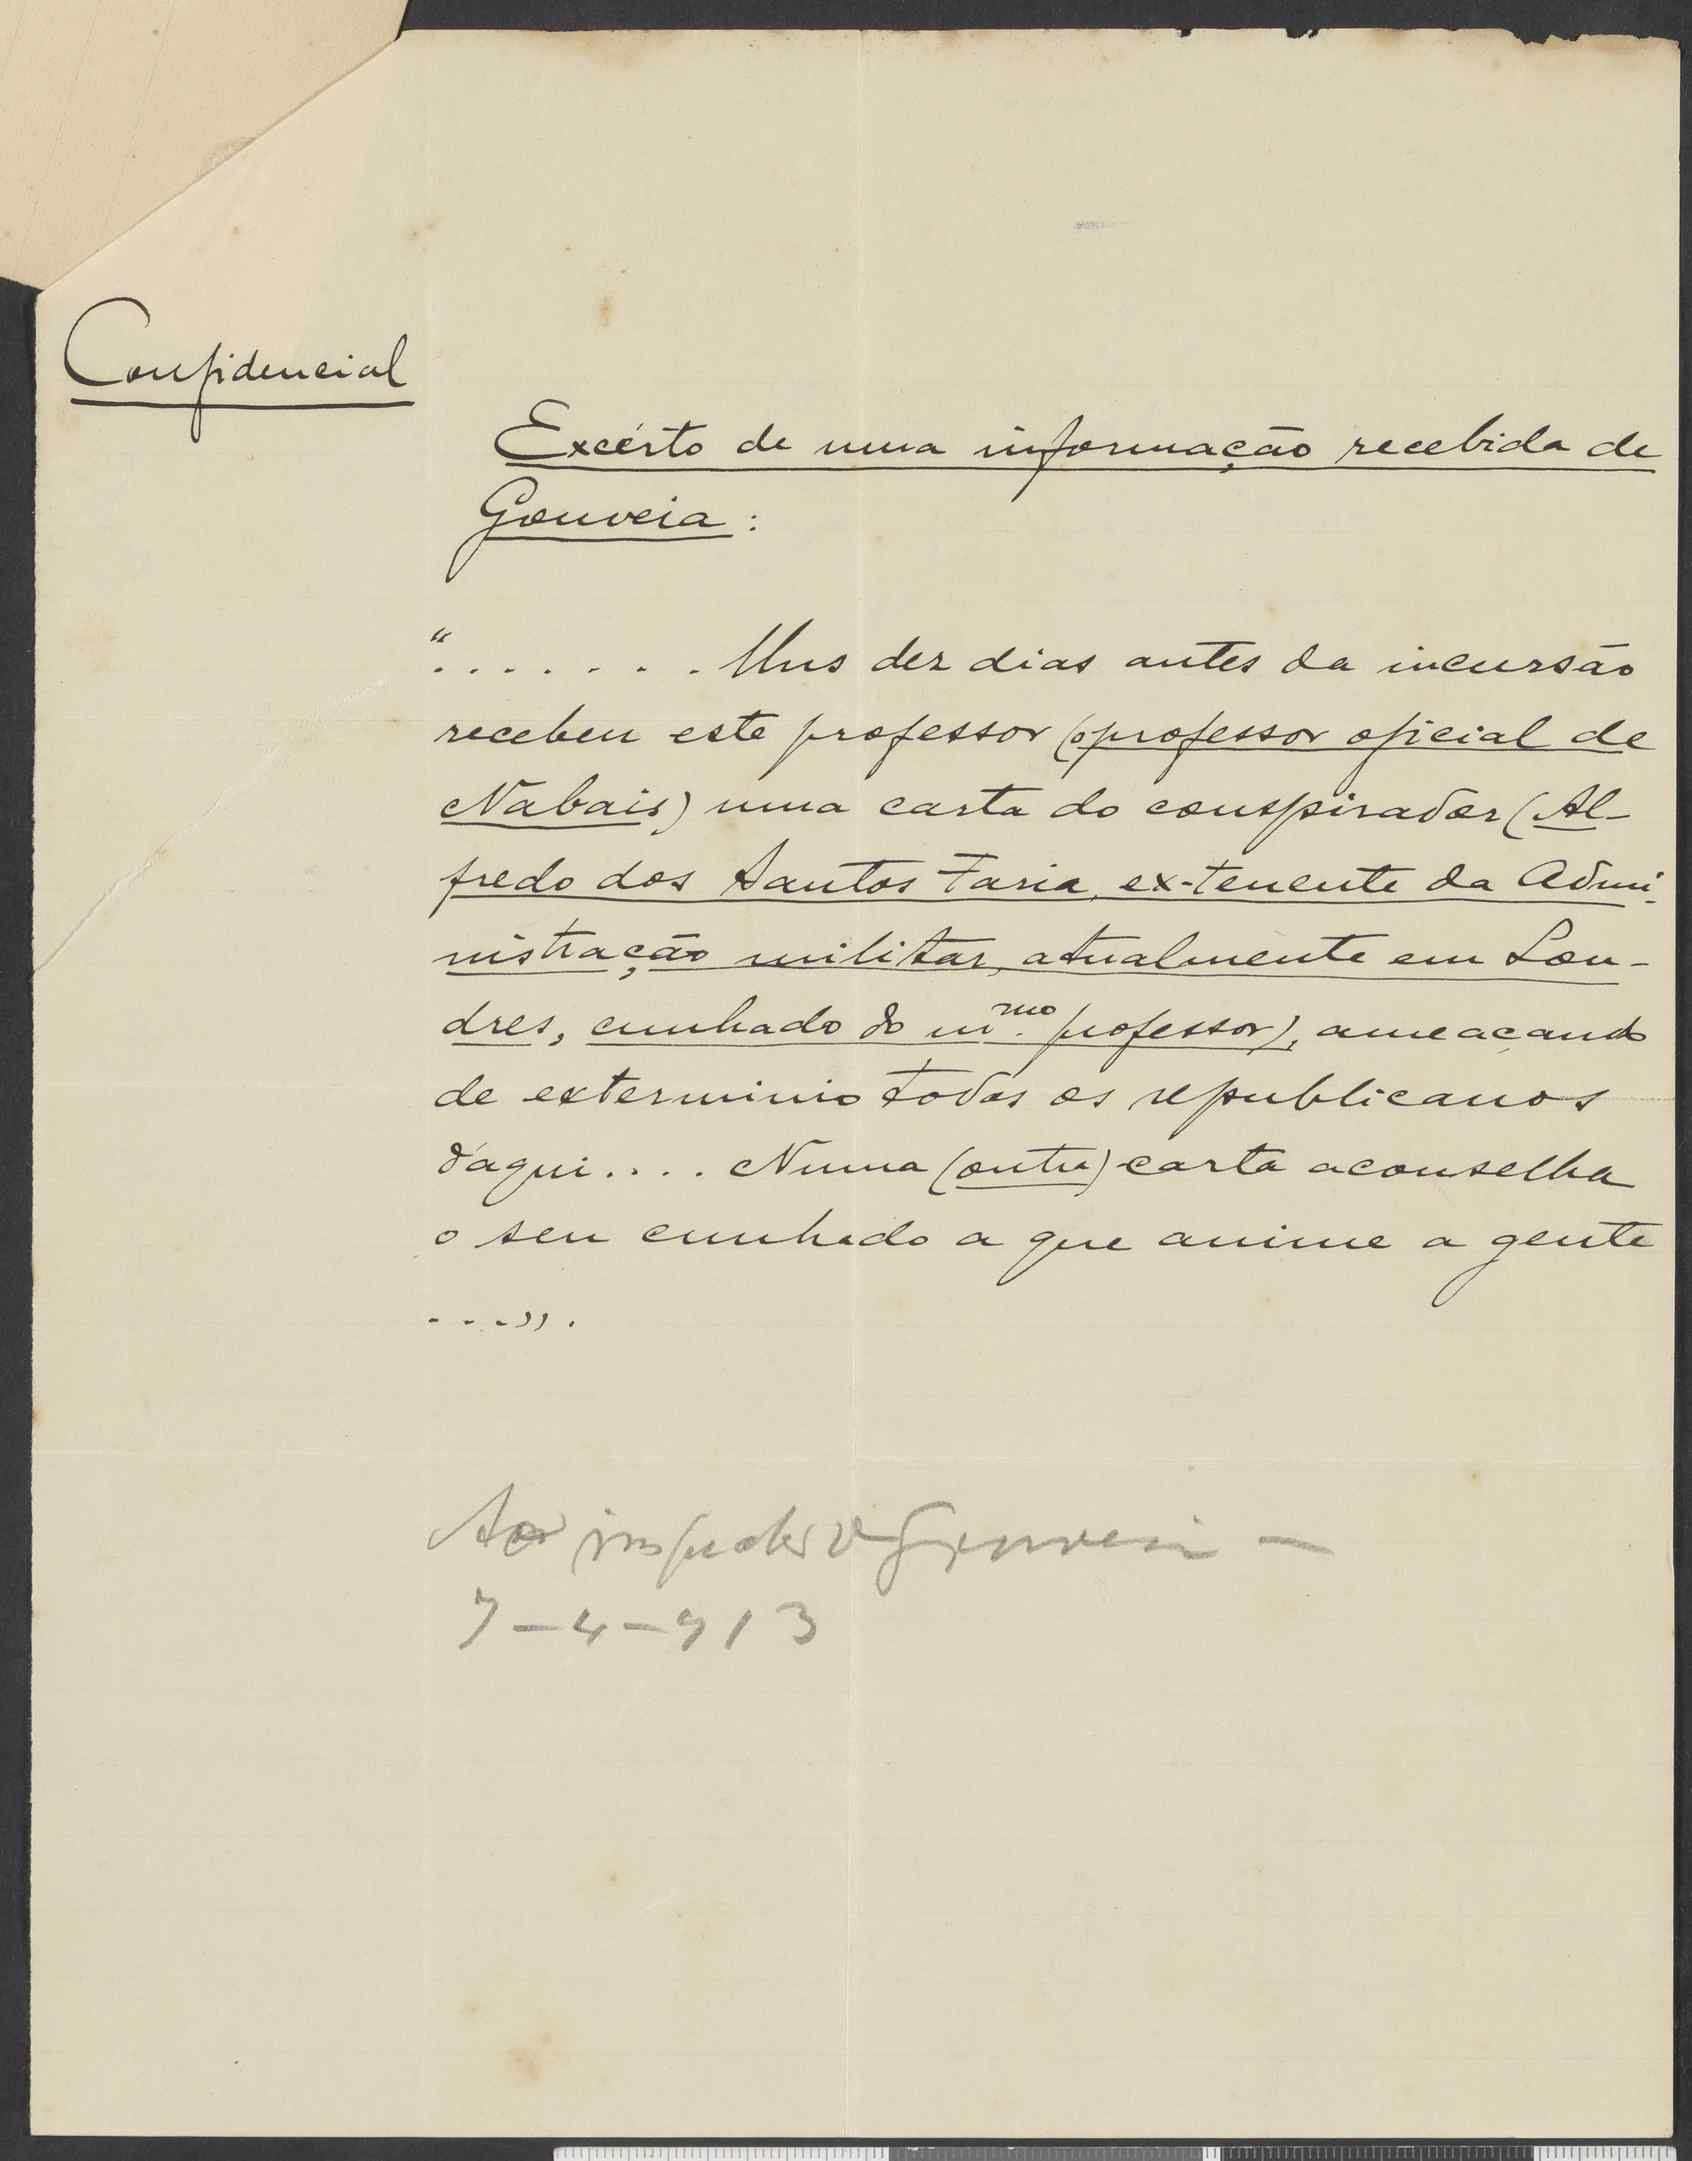 Confidencial
Excérto de uma informação recebida de
Gouveia:
"....... Uns dez dias antes da incursão
recebeu este professor (o professor oficial de
Nabais) uma carta do conspirador (Al-
fredo dos Santos Faria, ex-tenente da Admi-
nistração militar, atualmente em Lon-
dres, cunhado do m.mo professor), ameaçando
de exterminio todos os republicanos
d'aqui.... Numa (outra) carta aconselha
o seu cunhado a que anime a gente
...".
Ao inspector de Gouveia —
7-4-913